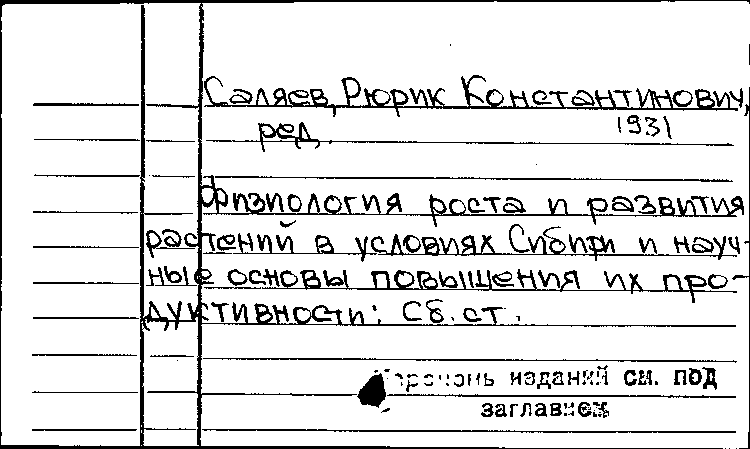 Саляев, Рюрик Константинович,
ред. 1931
Физиология роста и развития
растений в условиях Сибири и науч-
ные основы повышения их про-
дуктивности: Сб. ст.
Перечень изданий см. под
заглавием